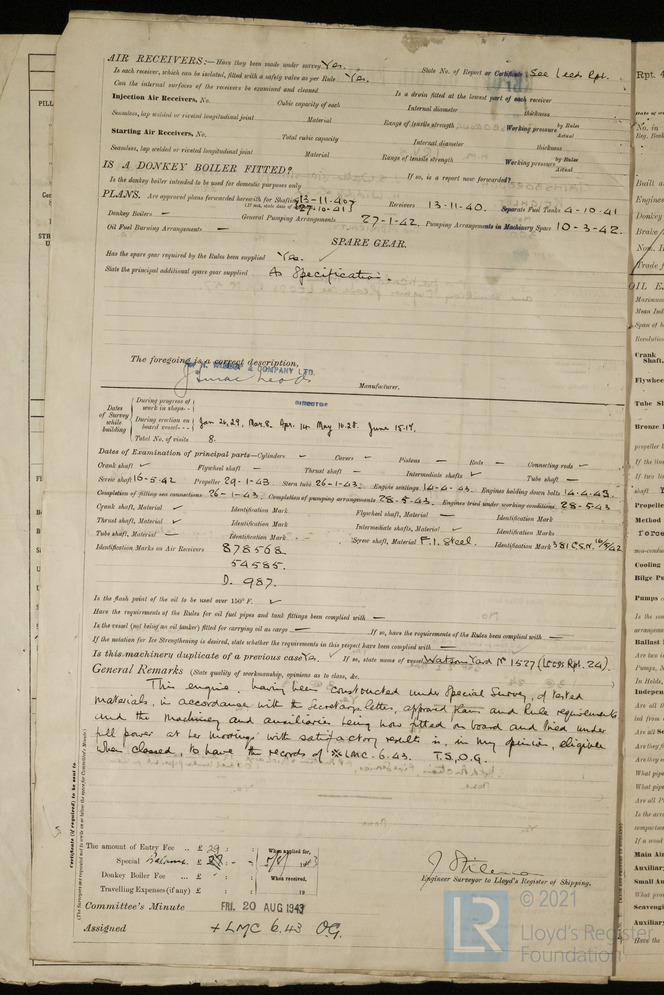 AIR RECEIVERS:—Have they been made under survey Yes. State No. of Report or Certificate See Leeds Rpt.
Is each receiver, which can be isolated, fitted with a safety valve as per Rule Yes.
Can the internal surfaces of the receivers be examined and cleaned Is a drain fitted at the lowest part of each receiver
Injection Air Receivers, No. Cubic capacity of each Internal diameter thickness
Seamless, lap welded or riveted longitudinal joint Material Range of tensile strength Working pressure by Rules Actual
Starting Air Receivers, No. Total cubic capacity Internal diameter thickness
Seamless, lap welded or riveted longitudinal joint Material Range of tensile strength Working pressure by Rules Actual
IS A DONKEY BOILER FITTED?
If so, is a report now forwarded?
Is the donkey boiler intended to be used for domestic purposes only
PLANS. Are approved plans forwarded herewith for Shafting 13-11-40 27-10-41 Receivers 13-11-40. Separate Fuel Tanks 4-10-41
Donkey Boilers — General Pumping Arrangements 27-1-42. Pumping Arrangements in Machinery Space 10-3-42.
Oil Fuel Burning Arrangements —
SPARE GEAR.
Has the spare gear required by the Rules been supplied Yes.
State the principal additional spare gear supplied As Specification.
The foregoing is a correct description,
& COMPANY LTD.
Manufacturer.
DIRECTOR
Dates of Survey while building
During progress of work in shops--
During erection on board vessel--- Jan 26.29. Mar.8. Apr. 14. May 10.28. June 15.17.
Total No. of visits 8.
Dates of Examination of principal parts—Cylinders Covers Pistons Rods Connecting rods
Crank shaft Flywheel shaft Thrust shaft Intermediate shafts Tube shaft
Screw shaft 16-5-42 Propeller 29-1-43 Stern tube 26-1-43. Engine seatings 14-4-43. Engines holding down bolts 14.4.43.
Completion of fitting sea connections 26-1-43. Completion of pumping arrangements 28-5-43. Engines tried under working conditions 28-5-43
Crank shaft, Material Identification Mark Flywheel shaft, Material Identification Mark
Thrust shaft, Material Identification Mark Intermediate shafts, Material Identification Mark
Tube shaft, Material Identification Mark Screw shaft, Material F.I. Steel. Identification Mark 381 C.S.N. 16/5/42
Identification Marks on Air Receivers 878568
54585.
D. 987.
Is the flash point of the oil to be used over 150° F.
Have the requirements of the Rules for oil fuel pipes and tank fittings been complied with —
Is the vessel (not being an oil tanker) fitted for carrying oil as cargo — If so, have the requirements of the Rules been complied with —
If the notation for Ice Strengthening is desired, state whether the requirements in this respect have been complied with —
Is this machinery duplicate of a previous case Yes. If so, state name of vessel Watson Yard No 1527 (Leeds Rpt. 24).
General Remarks (State quality of workmanship, opinions as to class, &c.
This engine, having been constructed under Special Survey, of tested
materials, in accordance with the Secretary's letter, approved plans and Rule requirements
and the machinery and auxiliaries being now fitted on board and tried under
full power at her moorings with satisfactory results is, in my opinion, eligible
when classed, to have the records of LMC. 6.43. T.S, O.G.
Certificate (if required) to be sent to
(The Surveyors are requested not to write on or below the space for Committee's Minute.)
The amount of Entry Fee .. £ 29 : : When applied for,
Special £
Donkey Boiler Fee ... £ : : When received,
Travelling Expenses (if any) £ : : 19
Engineer Surveyor to Lloyd's Register of Shipping.
Committee's Minute FRI. 20 AUG 1943
Assigned + LMC 6.43 OG.
LR © 2021
Lloyd's Register
Foundation